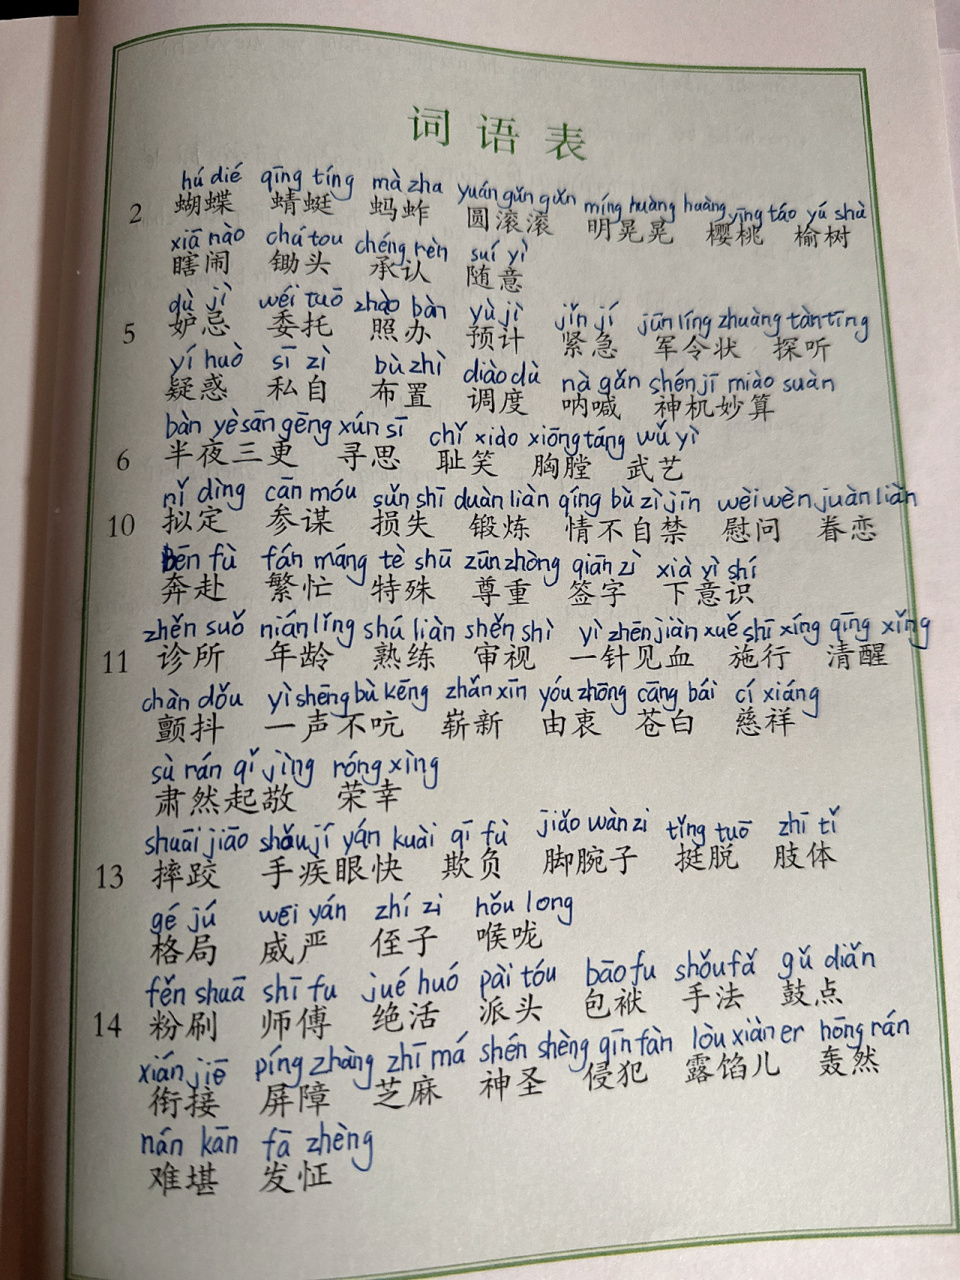 词语表
hú dié qīng tíng mà zha yuán gǔn gǔn míng huàng huàng yīng táo yú shù
2 蝴蝶 蜻蜓 蚂蚱 圆滚滚 明晃晃 樱桃 榆树
xiā nào chú tou chéng rèn suí yì
瞎闹 锄头 承认 随意
dù jì wěi tuō zhào bàn yù jì jǐn jí jūn líng zhuàng tàn tīng
5 妒忌 委托 照办 预计 紧急 军令状 探听
yí huò sī zì bù zhì diào dù nà gǎn shén jī miào suàn
疑惑 私自 布置 调度 呐喊 神机妙算
bàn yè sān gēng xún sī chǐ xiào xiōng táng wǔ yì
6 半夜三更 寻思 耻笑 胸膛 武艺
nǐ dìng cān móu sǔn shī duàn liàn qíng bù zì jīn wèi wèn juàn liàn
10 拟定 参谋 损失 锻炼 情不自禁 慰问 眷恋
bēn fù fán máng tè shū zūn zhòng qiān zì xià yì shí
奔赴 繁忙 特殊 尊重 签字 下意识
zhěn suǒ nián lǐng shú liàn shěn shì yì zhēn jiàn xuě shī xíng qīng xǐng
11 诊所 年龄 熟练 审视 一针见血 施行 清醒
chàn dǒu yì shēng bù kēng zhǎn xīn yóu zhōng cāng bái cí xiáng
颤抖 一声不吭 崭新 由衷 苍白 慈祥
sù rán qǐ jìng róng xìng
肃然起敬 荣幸
shuāi jiāo shǒu jí yán kuài qī fù jiǎo wàn zi tǐng tuō zhī tǐ
13 摔跤 手疾眼快 欺负 脚腕子 挺脱 肢体
gé jú wēi yán zhí zi hǒu long
格局 威严 侄子 喉咙
fěn shuā shī fu jué huó pài tóu bāo fu shǒu fǎ gǔ diǎn
14 粉刷 师傅 绝活 派头 包袱 手法 鼓点
xián jiē píng zhàng zhī má shén shèng qīn fàn lòu xiàn er hōng rán
衔接 屏障 芝麻 神圣 侵犯 露馅儿 轰然
nán kān fā zhèng
难堪 发怔